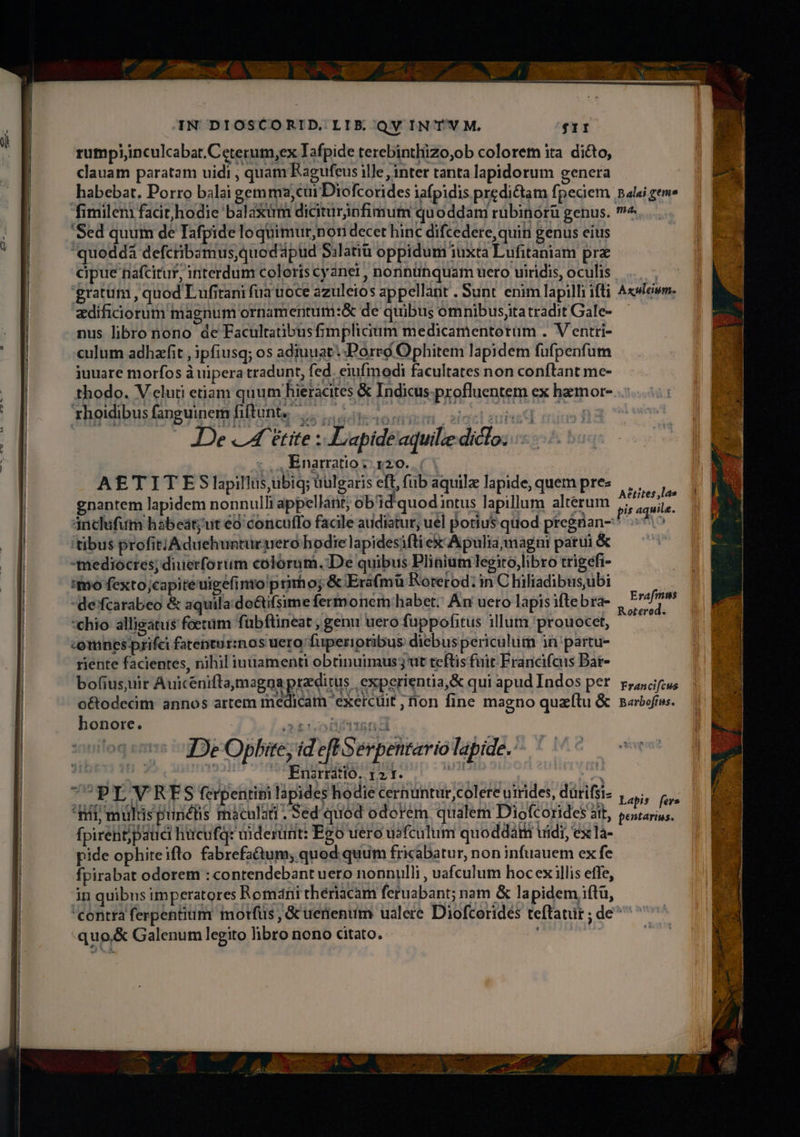 IN DIOSCORID. LIB. QVINTVM. 511
rumpi,inculcabat.Ceterum,ex Iaſpide terebinthizo,ob colorem ita dicto,
clauam paratam uidi, quam Raguſeus ille, inter tanta lapidorum genera
habebat. Porro balai gemma,cui Dioſcorides iaſpidis prędictam ſpeciem Balai gem=
ſimilem facit,hodie balaxum dicitur,infimum quoddam rubinorū genus. ma.
Sed quum de Iaſpide loquimur,non decet hinc diſcedere,quin genus eius
quoddā deſcribamus,quod apud Salatiū oppidum iuxta Luſitaniam præ
cipue naſcitur, interdum coloris cyanei, nonnunquam uero uiridis, oculis
gratum, quod Luſitani ſua uoce azuleios appellant. Sunt enim lapilli iſti Azuleium.
ædificiorum magnum ornamentum:& de quibus omnibus,ita tradit Gale-
nus libro nono de Facultatibus ſimplicium medicamentorum. Ventri-
culum adhæſit, ipſiusq; os adiuuat. Porrò Ophitem lapidem ſuſpenſum
iuuare morſos à uipera tradunt, ſed eiuſmodi facultates non conſtant me-
thodo. Veluti etiam quum hieracites & Indicus profluentem ex hæmor-
rhoidibus ſanguinem ſiſtunt.
De Aëtite: Lapide aquilæ dicto.
Enarratio. 120.
AETITES lapillus,ubiq; uulgaris eſt, ſub aquilæ lapide, quem præ=
gnantem lapidem nonnulli appellant; ob id quod intus lapillum alterum Aëtites,la=
incluſum habeat,ut eo concuſſo facile audiatur, uel potius quod pregnan- pis aquilæ.
tibus profit:Aduehuntur uero hodie lapides iſti ex Apulia,magni parui &
mediocres, diuerſorum colorum. De quibus Plinium legito,libro trigeſi-
mo ſexto,capite uigeſimo primo; & Eraſmū Roterod: in Chiliadibus,ubi
de ſcarabeo & aquila doctiſsime ſermonem habet. An uero lapis iſte bra= Eraſmus
chio alligatus fœtum ſubſtineat, genu uero ſuppoſitus illum prouocet, Roterod.
omnes priſci fatentur:nos uero ſuperioribus diebus periculum in partu-
riente facientes, nihil iuuamenti obtinuimus; ut teſtis fuit Franciſcus Bar-
boſius,uir Auiceniſta,magna præditus experientia,& qui apud Indos per Franciſcus
octodecim annos artem medicam exercuit, non ſine magno quæſtu & Barboſius.
honore.
De Ophite, id eſt Serpentario lapide.
Enarratio. 121.
PLVRES ſerpentini lapides hodie cernuntur,colere uirides, duriſsi= Lapis ſere
mi, multis punctis maculati. Sed quod odorem, qualem Dioſcorides ait, pentarius.
ſpirent,pauci hucuſq; uiderunt: Ego uero uaſculum quoddam uidi, ex la-
pide ophite iſto fabrefactum, quod quum fricabatur, non inſuauem ex ſe
ſpirabat odorem: contendebant uero nonnulli, uaſculum hoc ex illis eſſe,
in quibus imperatores Romani theriacam ſeruabant; nam & lapidem iſtū,
contra ſerpentium morſus, & uenenum ualere Dioſcorides teſtatur; de
quo,& Galenum legito libro nono citato.